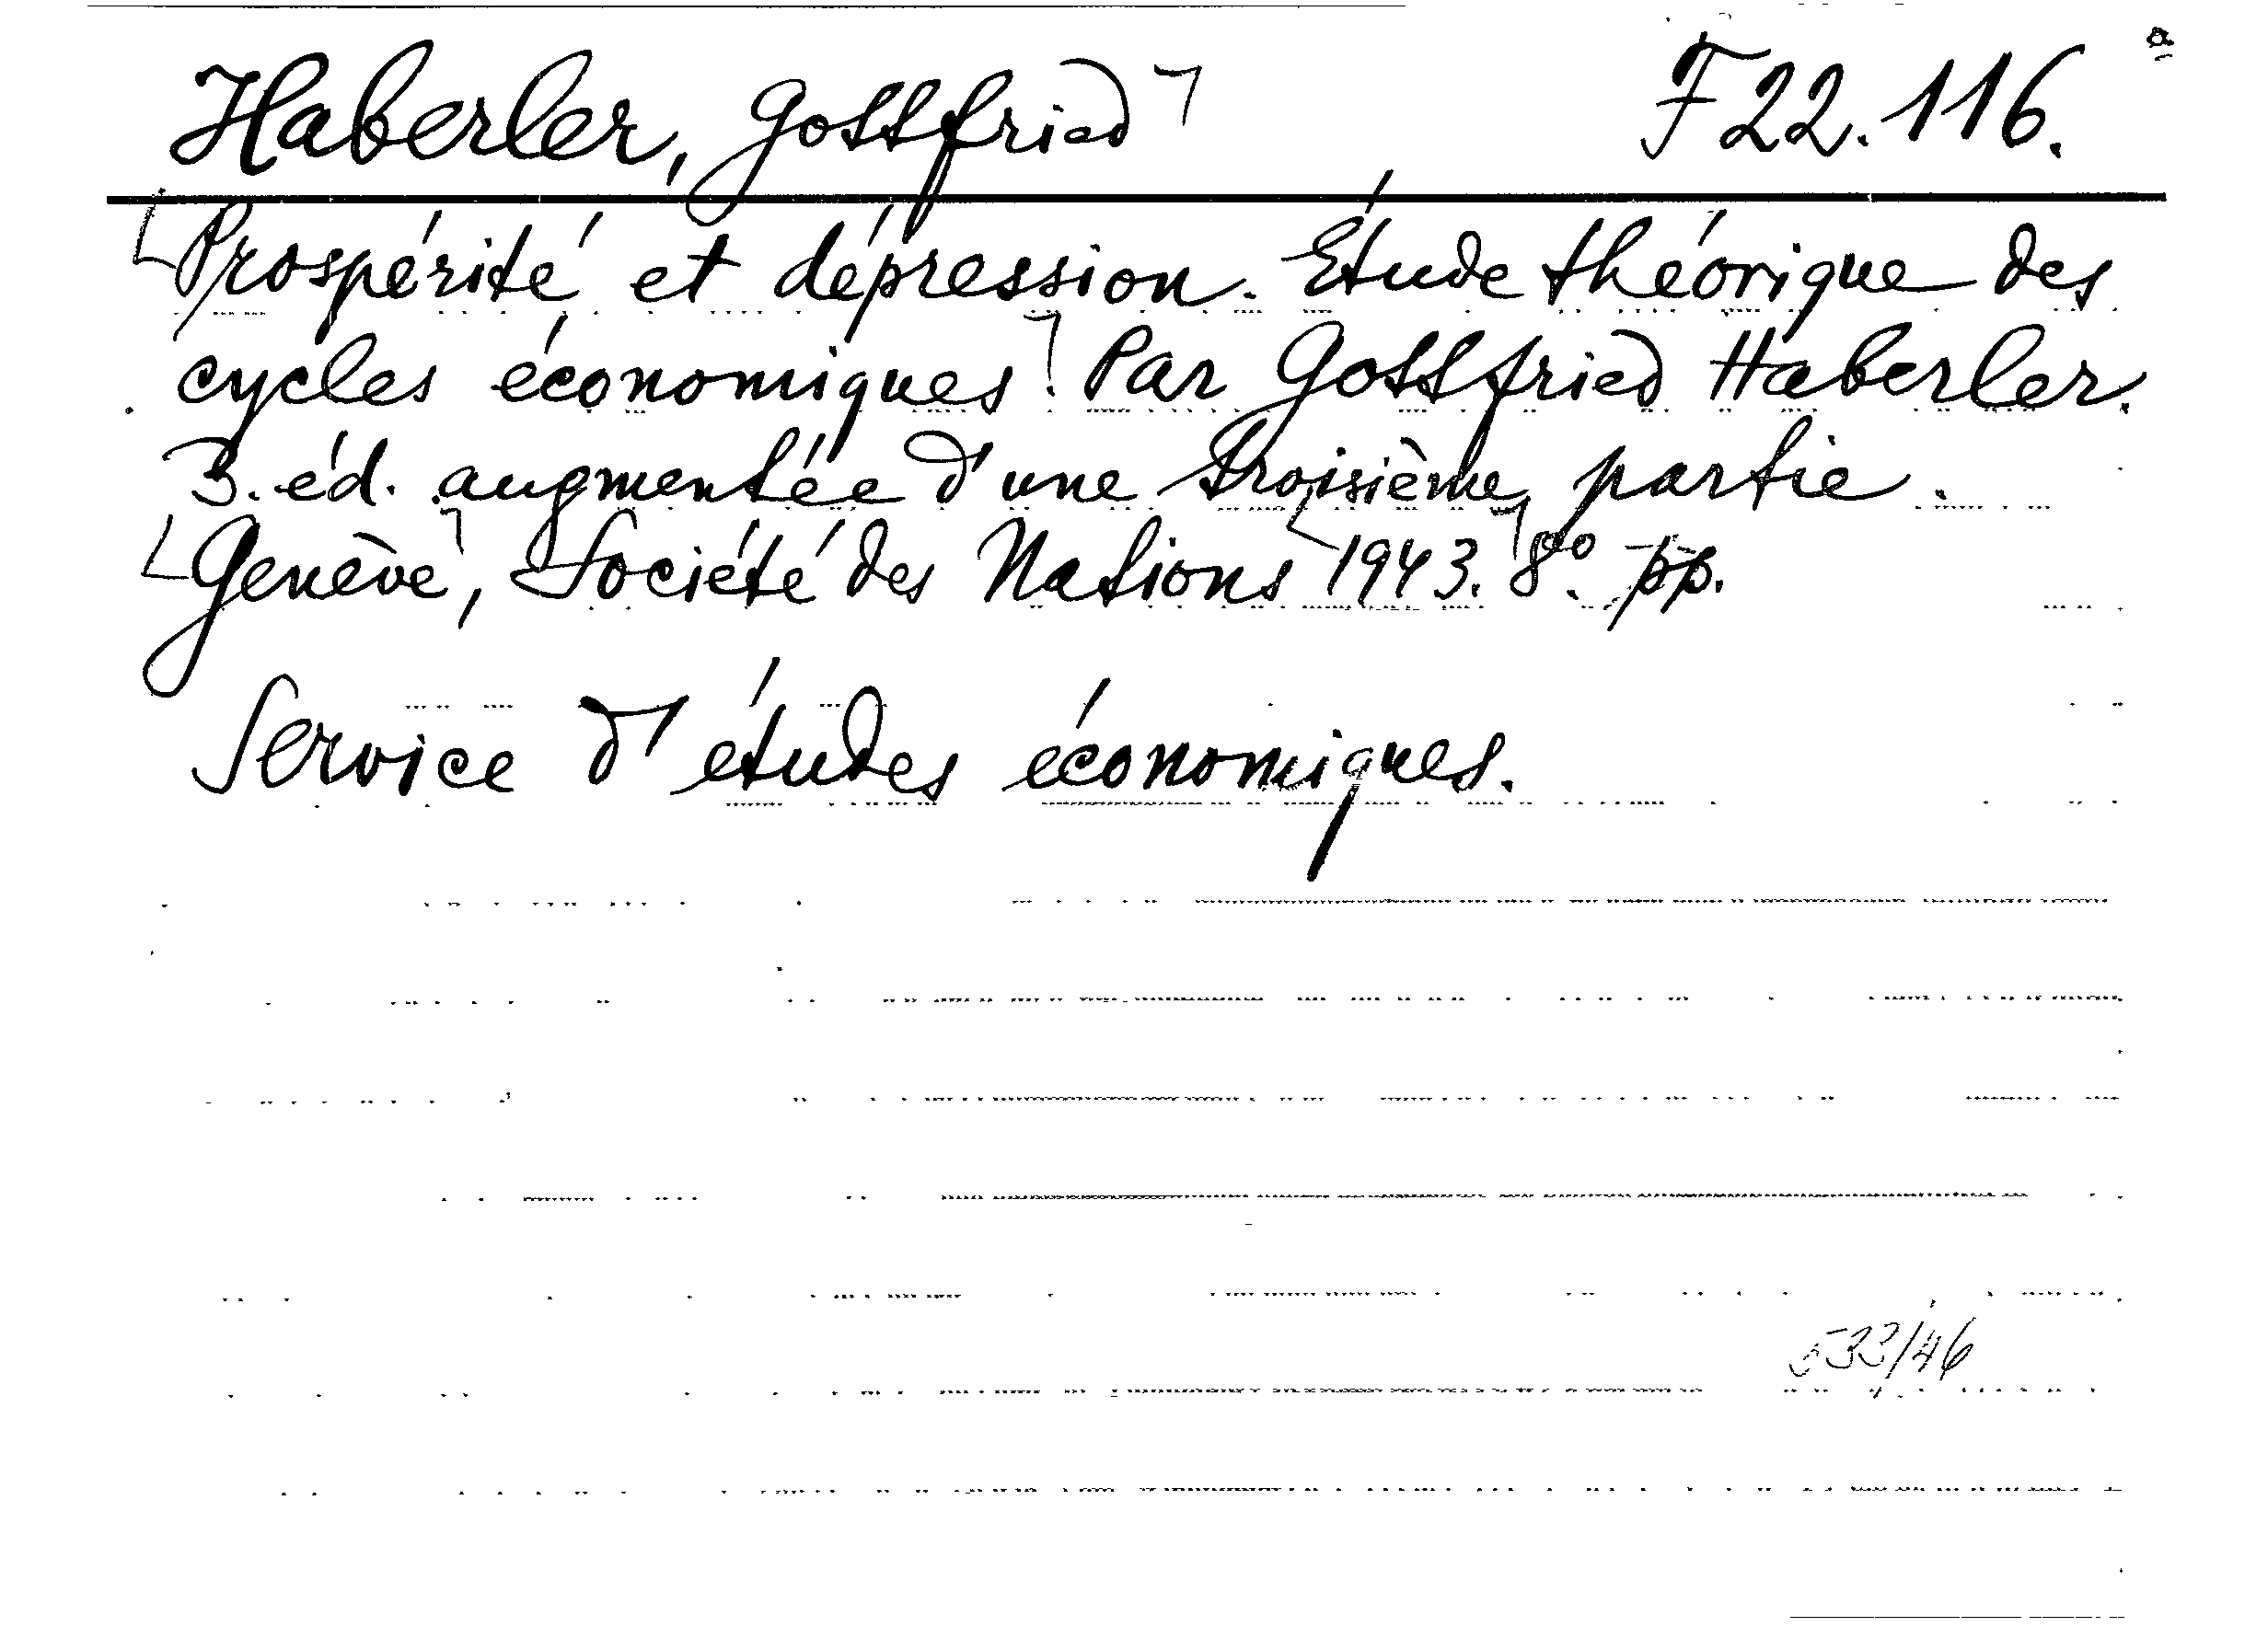 Haberler, Gottfried F 22.116. a
Prospérité et dépression. Étude théorique des
cycles économiques. Par Gottfried Haberler.
3. éd. augmentée d'une troisième partie.
Genève, Société des Nations 1943. 8°. pp.
Service d'études économiques.
533/46